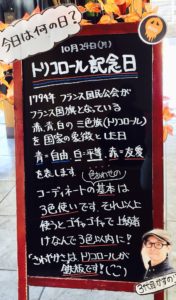 今日は何の日？
10月29日(月)
トリコロール記念日
1794年フランス国民公会が
フランス国旗となっている
赤、青、白の三色旗(トリコロール)
を国家の象徴とした日
青=自由 白=平等 赤=友愛
を表します (色あわせの)
コーディネートの基本は
3色使いです それ以上
使うとゴチャゴチャで上級者
けなんで3色以内に!
さわやかさは トリコロールが
鉄板です!
3代目かずの